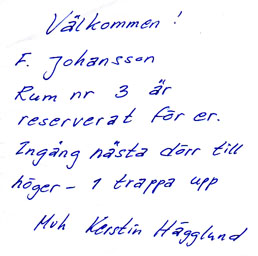 Välkommen!
F. Johansson
Rum nr 3 är
reserverat för er.
Ingång nästa dörr till
höger - 1 trappa upp
Mvh Kerstin Hägglund